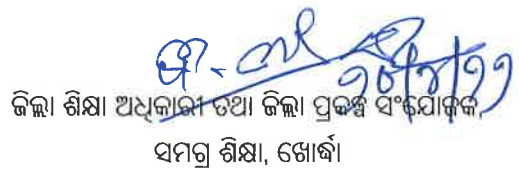 ଜିଲ୍ଲା ଶିକ୍ଷା ଅଧିକାରୀ ତଥା ଜିଲ୍ଲା ପ୍ରକଳ୍ପ ସଂଯୋଜକ,
ସମଗ୍ର ଶିକ୍ଷା, ଖୋର୍ଦ୍ଧା